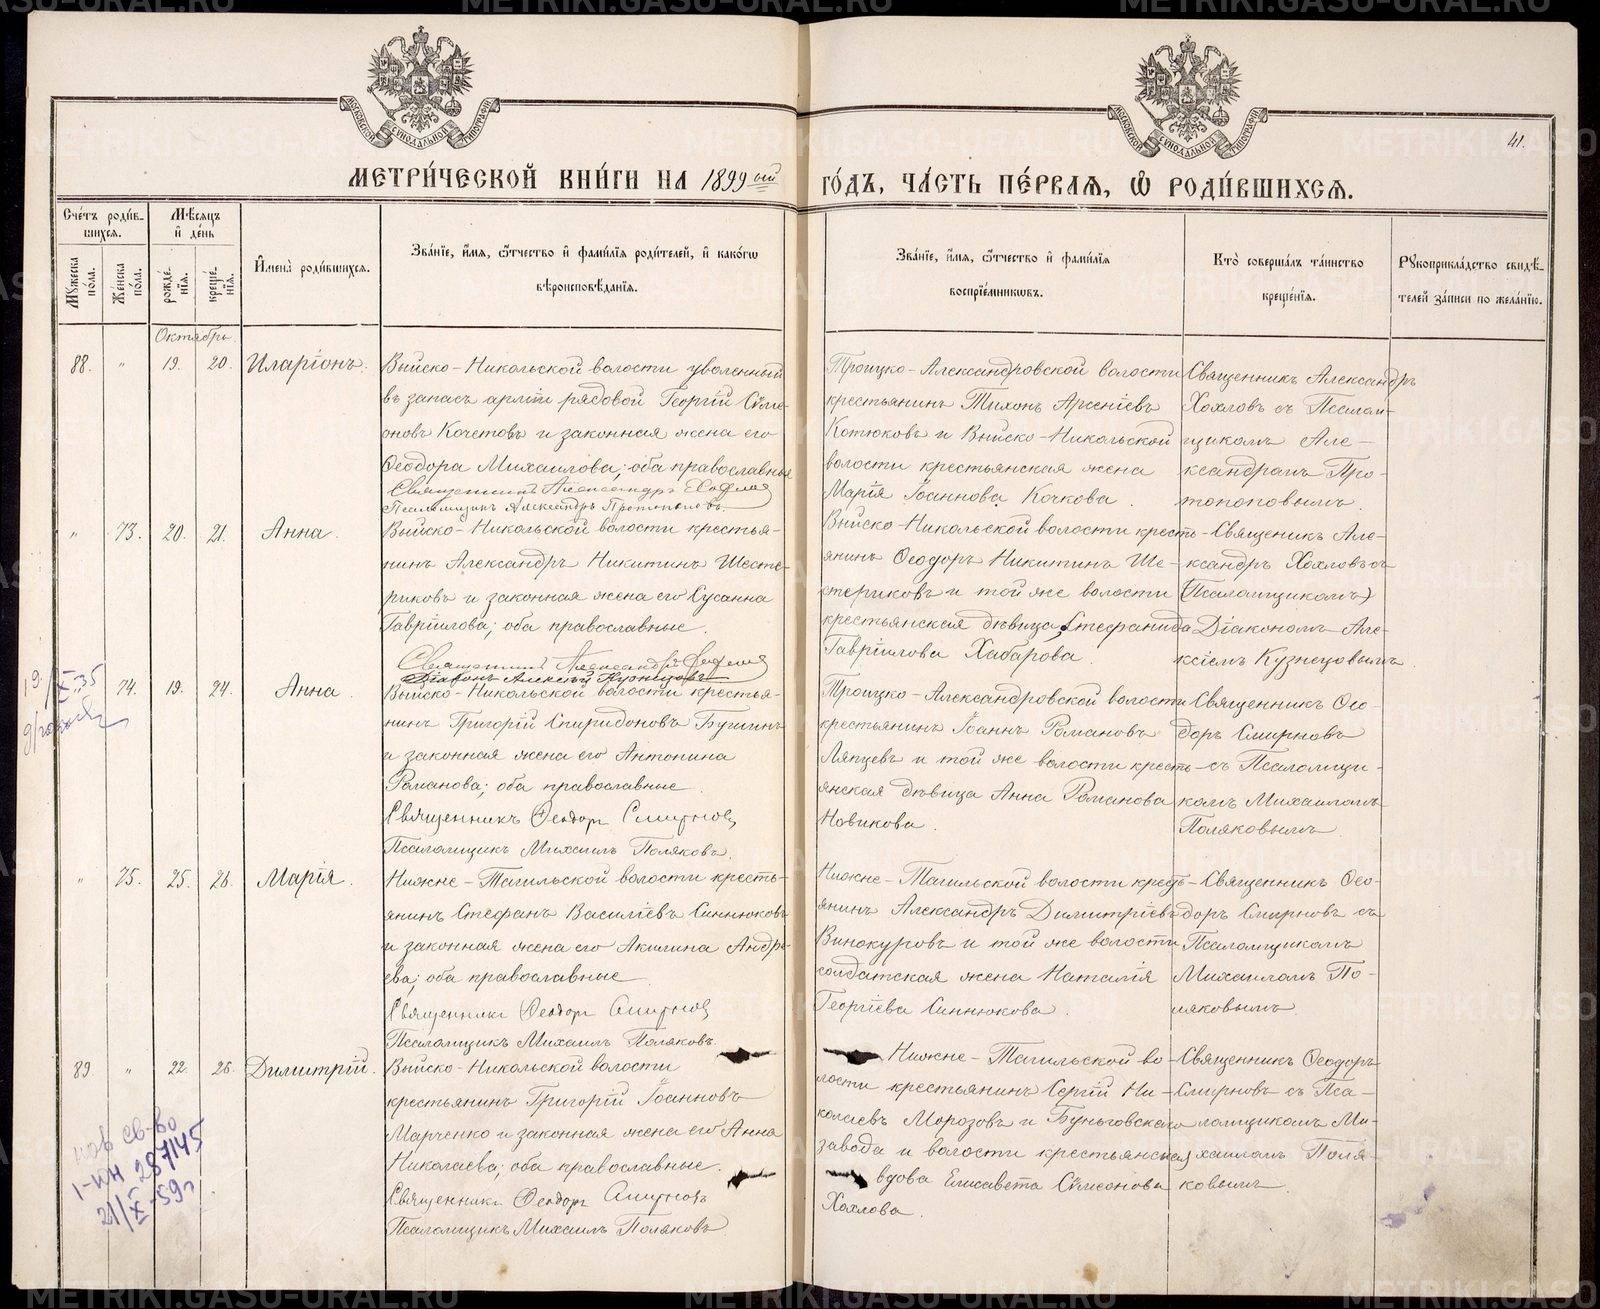 METRIKI.GASO-URAL.RU
МОСКОВСКОЙ СѴНОДАЛЬНОЙ ТИПОГРАФІИ
МОСКОВСКОЙ СѴНОДАЛЬНОЙ ТИПОГРАФІИ
41.
МЕТРИ́ЧЕСКОЙ КНИ́ГИ НА 1899ый ГО́ДЪ, ЧА́СТЬ ПЕ́РВАЯ, Ѿ РОДИ́ВШИХСЯ.
Сче́тъ роди́вшихся.
Мѣ́сяцъ и҆ де́нь
Мꙋ́жеска по́ла.
Же́нска по́ла.
рожде́нїя.
креще́нїя.
И҆мена̀ роди́вшихся.
Зва́нїе, и҆́мя, ѻ҆́тчество и҆ фами́лїя роди́телей, и҆ како́гѡ
вѣроисповѣ́данїя.
Зва́нїе, и҆́мя, ѻ҆́тчество и҆ фами́лїя
воспрїе́мникѡвъ.
Кто̀ соверша́лъ та́инство
креще́нїя.
Рꙋкоприкла́дство свидѣ́телей за́писи по жела́нїю.
Октябрь
88. " 19. 20. Иларіонъ.
Выйско-Никольской волости уволенный
въ запасъ арміи рядовой Георгій Сѵме-
оновъ Кочетовъ и законная жена его
Ѳеодора Михаилова; оба православные
Священникъ Александръ Хохловъ
Псаломщикъ Александръ Протопоповъ.
Троицко-Александровской волости
крестьянинъ Тихонъ Арсеніевъ
Котюковъ и Выйско-Никольской
волости крестьянская жена
Марія Іоаннова Кочкова.
Священникъ Александръ
Хохловъ съ Псалом-
щикомъ Але-
ксандромъ Про-
топоповымъ.
" 73. 20. 21. Анна.
Выйско-Никольской волости крестья-
нинъ Александръ Никитинъ Шесте-
риковъ и законная жена его Сусанна
Гавріилова; оба православные.
Священникъ Александръ Хохловъ
Діаконъ Алексѣй Кузнецовъ
Выйско-Никольской волости кресть-
янинъ Ѳеодоръ Никитинъ Ше-
стериковъ и той же волости
крестьянская дѣвица Стефанида
Гавріилова Хабарова.
Священникъ Але-
ксандръ Хохловъ съ
(Псаломщикомъ)
Діакономъ Але-
ксіемъ Кузнецовымъ.
19/X-35
74. 19. 24. Анна.
Выйско-Никольской волости крестья-
нинъ Григорій Спиридоновъ Бушинъ
и законная жена его Антонина
Романова; оба православные.
Священникъ Ѳеодоръ Смирновъ
Псаломщикъ Михаилъ Поляковъ.
Троицко-Александровской волости
крестьянинъ Іоаннъ Романовъ
Ляпцевъ и той же волости кресть-
янская дѣвица Анна Романова
Новикова.
Священникъ Ѳео-
доръ Смирновъ
съ Псаломщи-
комъ Михаиломъ
Поляковымъ.
" 75. 25. 26. Марія.
Нижне-Тагильской волости кресть-
янинъ Стефанъ Василіевъ Синюковъ
и законная жена его Акилина Андре-
ева; оба православные.
Священникъ Ѳеодоръ Смирновъ
Псаломщикъ Михаилъ Поляковъ.
Нижне-Тагильской волости кресть-
янинъ Александръ Димитріевъ
Винокуровъ и той же волости
солдатская жена Наталія
Георгіева Синнюкова.
Священникъ Ѳео-
доръ Смирновъ съ
Псаломщикомъ
Михаиломъ По-
ляковымъ.
89 " 22. 26. Димитрій.
Выйско-Никольской волости
крестьянинъ Григорій Іоанновъ
Марченко и законная жена его Анна
Николаева; оба православные.
Священникъ Ѳеодоръ Смирновъ
Псаломщикъ Михаилъ Поляковъ
Нижне-Тагильской во-
лости крестьянинъ Сергій Ни-
колаевъ Морозовъ и Буньговскаго
завода и волости крестьянская
вдова Елисавета Сѵмеонова
Хохлова.
Священникъ Ѳеодоръ
Смирновъ съ Пса-
ломщикомъ Ми-
хаиломъ Поля-
ковымъ.
пов св-во
1-ЮН 287145
21/X-59г